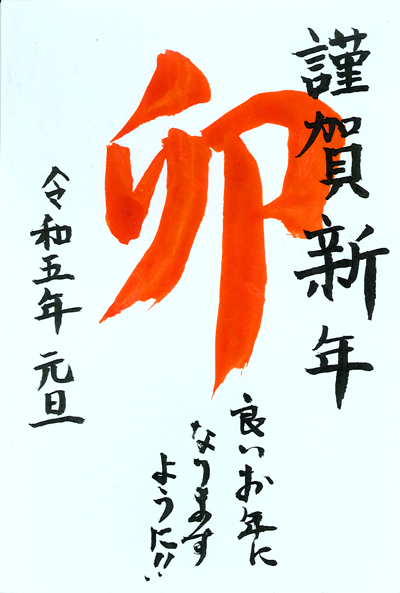 謹賀新年
卯
良いお年に
なります
ように!!
令和五年 元旦